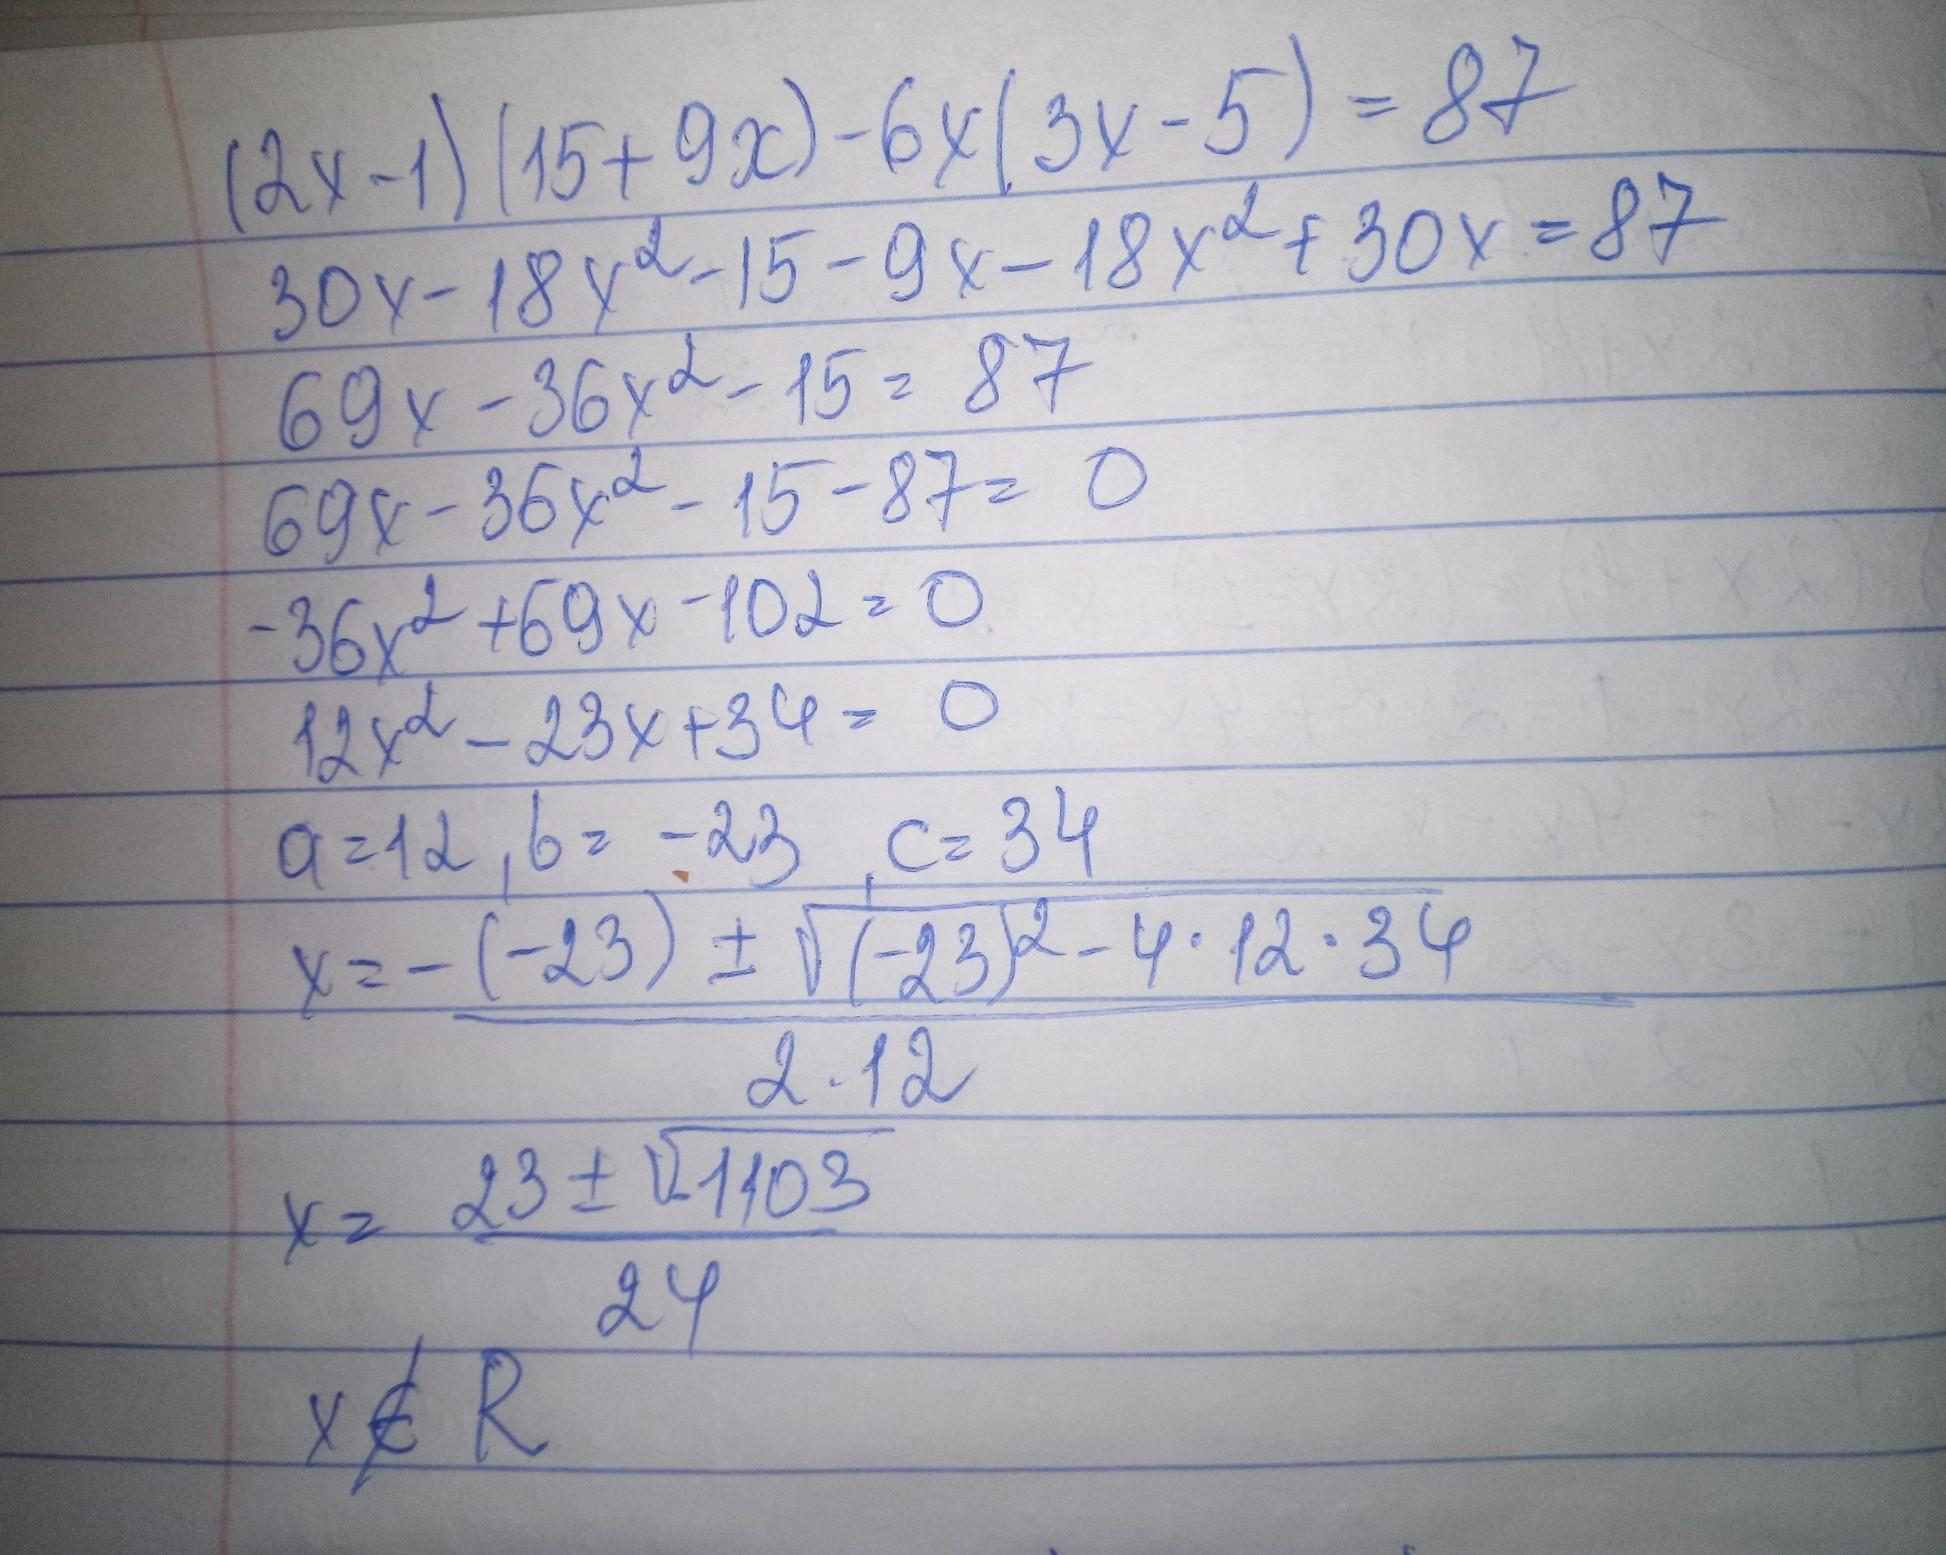 (2x-1)(15+9x)-6x(3x-5)=87
30x-18x²-15-9x-18x²+30x=87
69x-36x²-15=87
69x-36x²-15-87=0
-36x²+69x-102=0
12x²-23x+34=0
a=12, b=-23, c=34
x=-(-23)±√(-23)²-4·12·34
2·12
x=23±√-1103
24
x∉R